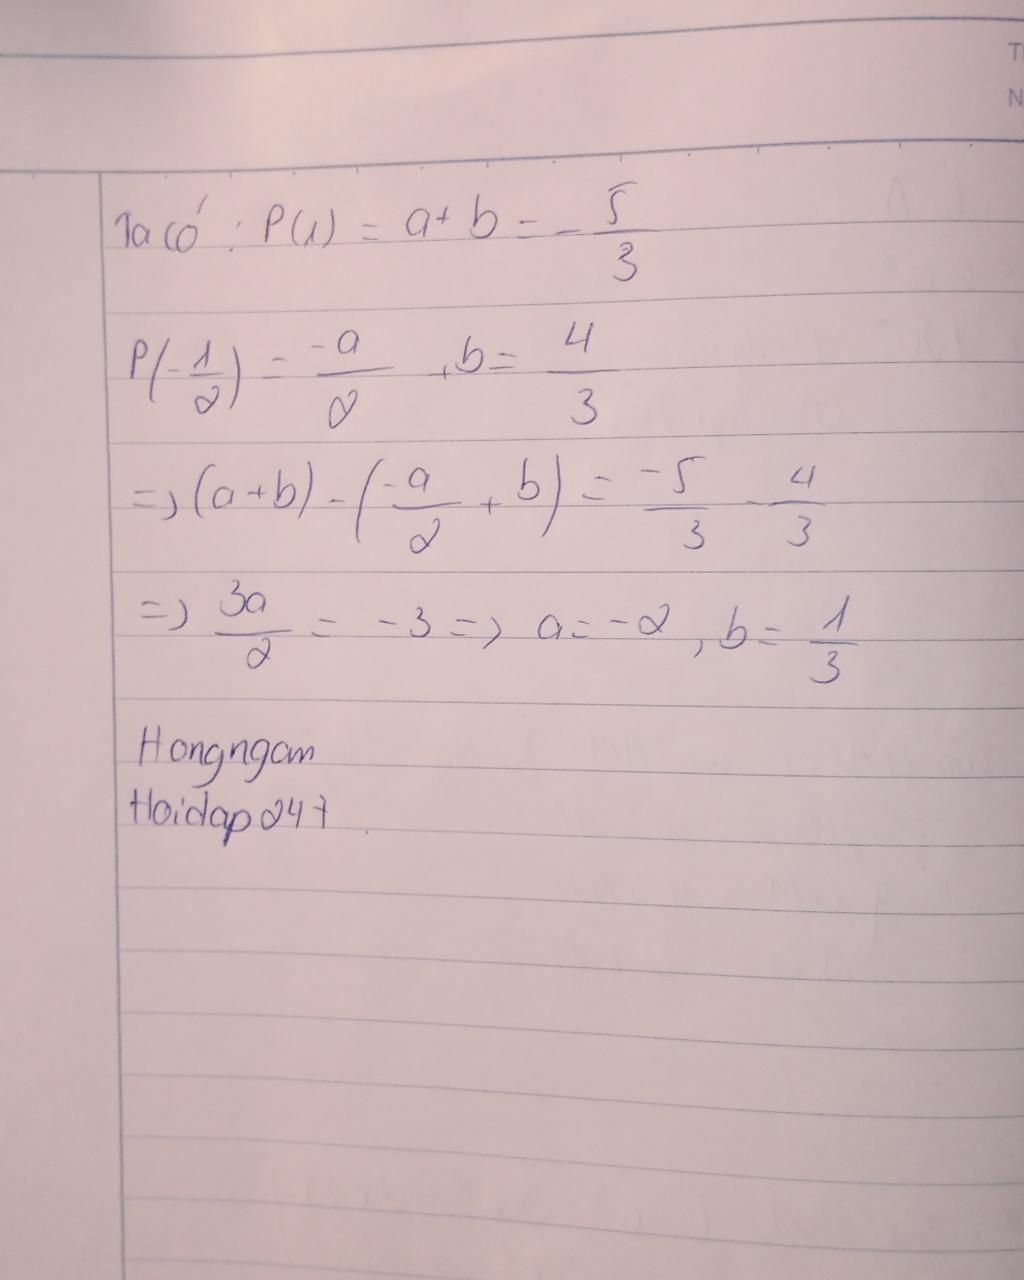 Ta có : P(1) = a + b = - 5/3
P(-1/2) = -a/2 + b = 4/3
=> (a+b) - (-a/2 + b) = -5/3 - 4/3
=> 3a/2 = -3 => a = -2, b = 1/3
Hongngam
Hoidap247